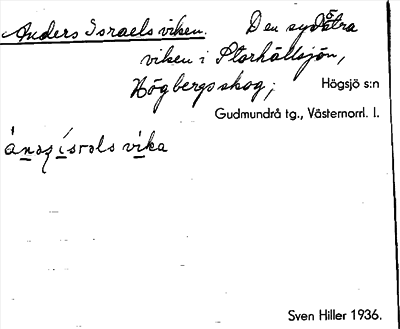 Anders Israels viken. Den sydöstra
viken i Storhällsjön,
Högbergs skog; Högsjö s:n
Gudmundrå tg., Västernorrl. l.
ànaʂ ísrols vika
Sven Hiller 1936.